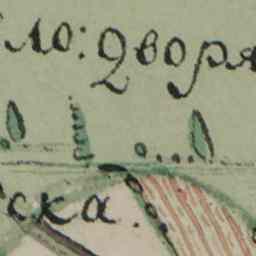 ло: Дворя
ска.